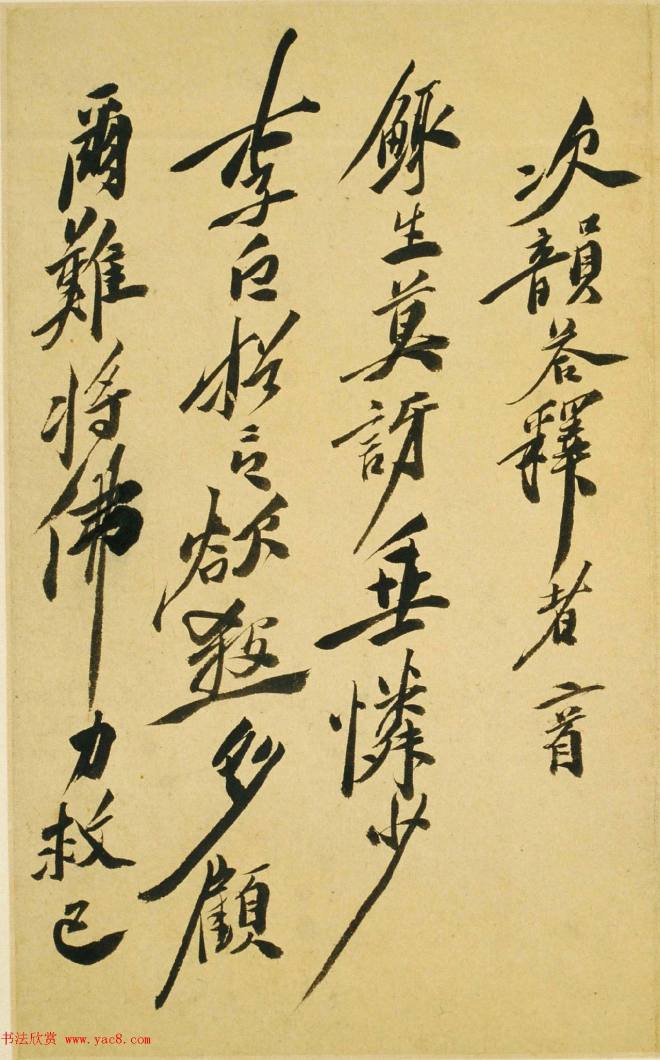 次韻答釋者二首
鯫生莫訝垂憐少
李白欲殺多顧
爾難將佛力救已
书法欣赏 www.yac8.com